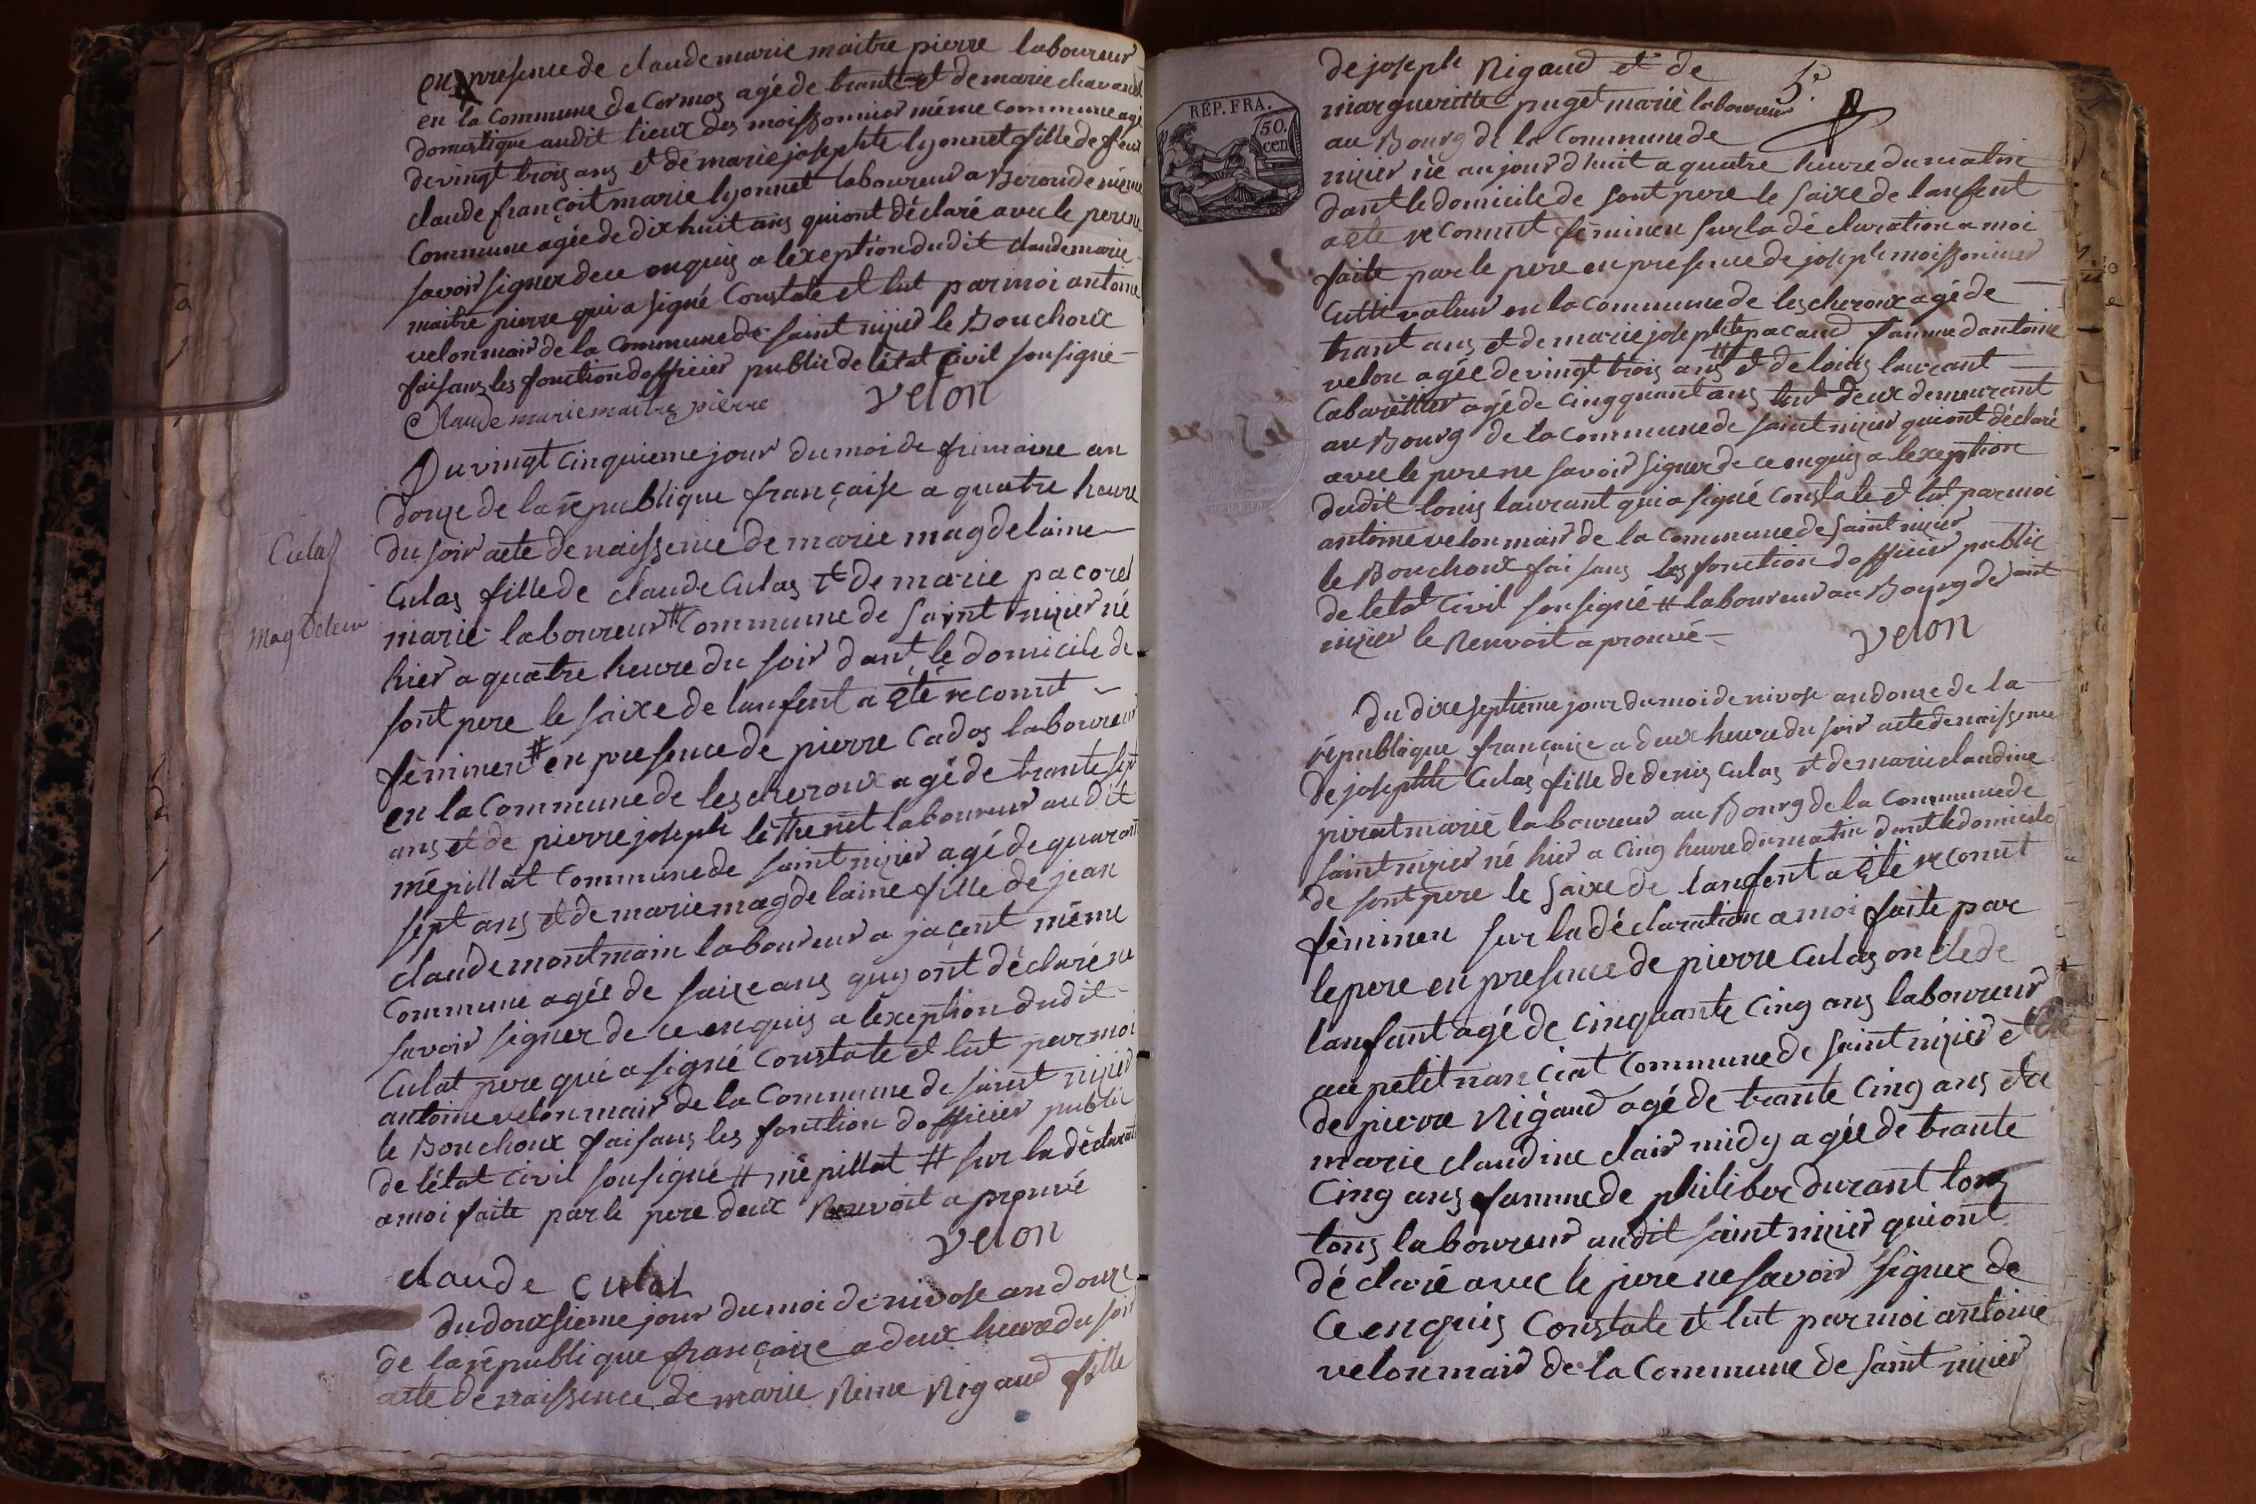 en presence de claude marie maitre pierre laboureur
en la Commune de Cormos agé de trante et de marie chavand
domestique audit lieux des moissonnier même Commune agé
de vingt trois ans et de marie josephte lyonnet fille de feu
claude françoit marie lyonnet laboureur a Beroude même
Commune agée de dix huit ans qui ont déclaré avec le pere ne
savoir signer de ce enquis a lexeption dudit claude marie
maitre pierre qui a signé Constate et lut par moi antoine
velon mair de la Commune de saint nizier le Bouchoux
faisans les fonction dofficier public de létat Civil sousigné
Claude marie maitre pierre velon
Du vingt cinquieme jour du moi de frimaire an
douze de la république française a quatre heure
du soir acte de naissence de marie magdelaine
Culas
Culas fille de claude Culas et de marie pacoret
marié laboureur # Commune de saint nizier né
Magdelen
hier a quatre heure du soir dant le domicile de
sont pere le saixe de lanfent a été reconut
féminen # en presence de pierre Cados laboureur
en la Commune de lescheroux agé de trante sept
ans et de pierre joseph léthenet laboureur audit
mépillat Commune de saint nizier agé de quarant
sept ans et de marie magdelaine fille de jean
claude montmain laboureur a jacent même
Commune agée de saize ans quy ont déclaré ne
savoir signer de ce enquis a lexeption dudit
Culat pere qui a signé Constate et lut par moi
antoine velon mair de la Commune de saint nizier
le Bouchoux faisans les fontion dofficier public
de létat Civil sousigné # mépillat # sur la déclarati
a moi faite par le pere deux Renvoit aprouvé
velon
claude Culat
du douxsieme jour du moi de nivose an douze
de la république françaize a deux heure du soir
acte de naissence de marie Reine Rigaud fille
5e
de joseph Rigaud et de
margueritte puget marié laboureur
REP. FRA.
50. cen
au Bourg de la Commune de
nizier né aujourdhuit a quatre heure du matin
dant le domicile de sont pere le saixe de lanfent
a été reconut féminen sur la déclaration a moi
faite par le pere en presence de joseph moissonnier
Cultivateur en la Commune de lescheroux agé de
trant ans et de marie josephte pacaud famme dantoine
velon agée de vingt trois ans # et de louis laurant
Cabarettier agé de cinqquant ans tout deux demeurant
au Bourg de la Commune de saint nizier qui ont déclaré
avec le pere ne savoir signer de ce enquis a lexeption
dudit louis laurant qui a signé Constate et lut par moi
antoine velon mair de la Commune de saint nizier
le Bouchoux faisans les fonction dofficier public
de létat Civil sousigné # laboureur au Bourg de saint
nizier le Renvoit aprouvé
velon
Du dixseptieme jour du moi de nivose an douze de la
république françaize a deux heure du soir acte de naissence
de josephte Culas fille de denis Culas et de marie claudine
pirat marié laboureur au Bourg de la Commune de
saint nizier né hier a Cinq heure du matin dant le domicile
de sont pere le saixe de lanfent a été reconut
féminen sur la déclaration a moi faite par
le pere en presence de pierre Culas oncle de
lanfant agé de cinquante Cinq ans laboureur
au petit nanciat Commune de saint nizier et
de pierre Rigaud agé de trante Cinq ans et de
marie claudine clair midy agée de trante
Cinq ans famme de philiber durant tous
tous laboureur audit saint nizier qui ont
déclaré avec le pere ne savoir signer de
Ce enquis Constate et lut par moi antoine
velon mair de la Commune de saint nizier